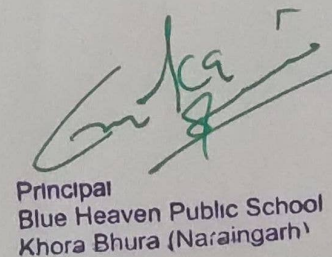 Principal
Blue Heaven Public School
Khora Bhura (Naraingarh)